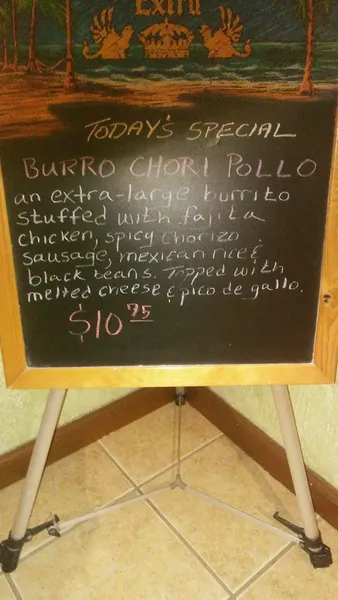 Extra
TODAY'S SPECIAL
BURRO CHORI POLLO
an extra-large burrito
stuffed with fajita
chicken, spicy chorizo
sausage, mexican rice &
black beans. Topped with
melted cheese & pico de gallo.
$10 75